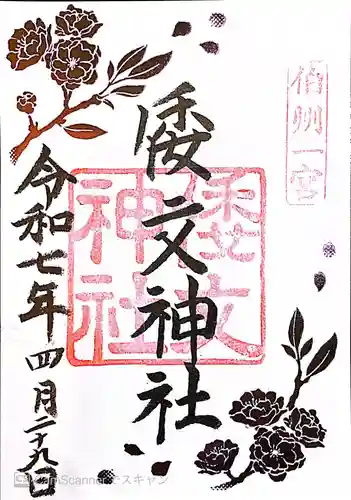 伯州一宮
倭文神社
倭文神社
令和七年四月二十九日
CamScannerでスキャン